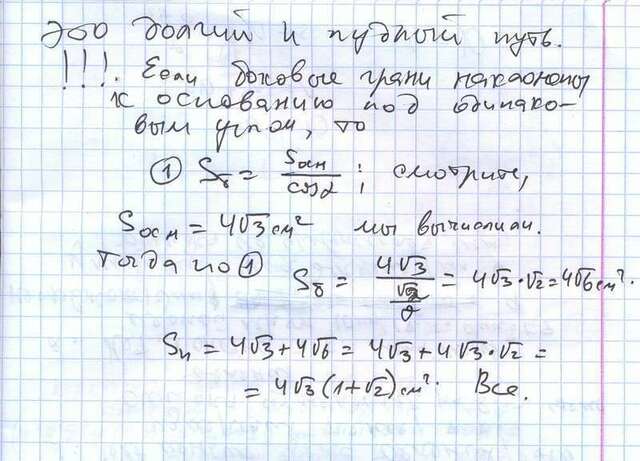 Это долгий и нудный путь.
!!!. Если боковые грани наклонены
к основанию под одинако-
вым углом, то
① Sб = Sосн/cosα ; смотрите,
Sосн = 4√3 см² мы вычислили.
Тогда по ① Sб = 4√3/(√2/2) = 4√3·√2 = 4√6 см².
Sп = 4√3 + 4√6 = 4√3 + 4√3·√2 =
= 4√3(1+√2) см². Все.